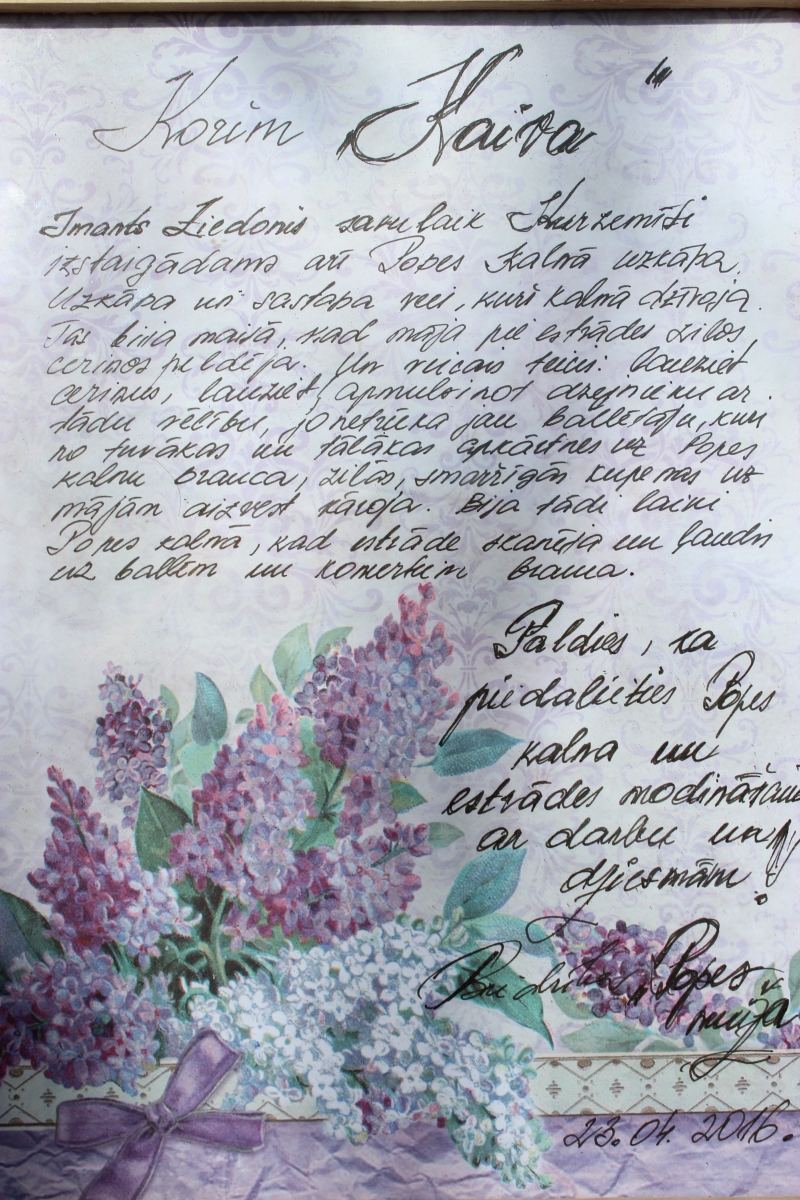 Korim „Kaiva"
Imants Ziedonis savulaik Kurzemīti
izstaigādams arī Popes Kalnā uzkāpa.
Uzkāpa un sastapa veci, kurš kalnā dzīvoja.
Tas bija maijā, kad māja pie estrādes zilos
ceriņos peldēja. Un vecais teica: lauziet
ceriņus, lauziet, apmulsinot dzejnieku ar
tādu vēlību, jo netrūka jau ballētāju, kuri
no tuvākas un tālākas apkārtnes uz Popes
kalnu brauca, zilās, smaržīgās kupenas uz
mājām aizvest kāroja. Bija tādi laiki
Popes kalnā, kad estrāde skanēja un ļaudis
uz ballēm un koncertiem brauca.
Paldies, ka
piedalieties Popes
kalna un
estrādes modināšanā
ar darbu un
dziesmām!
Biedrība „Popes
muiža"
23.04.2016.